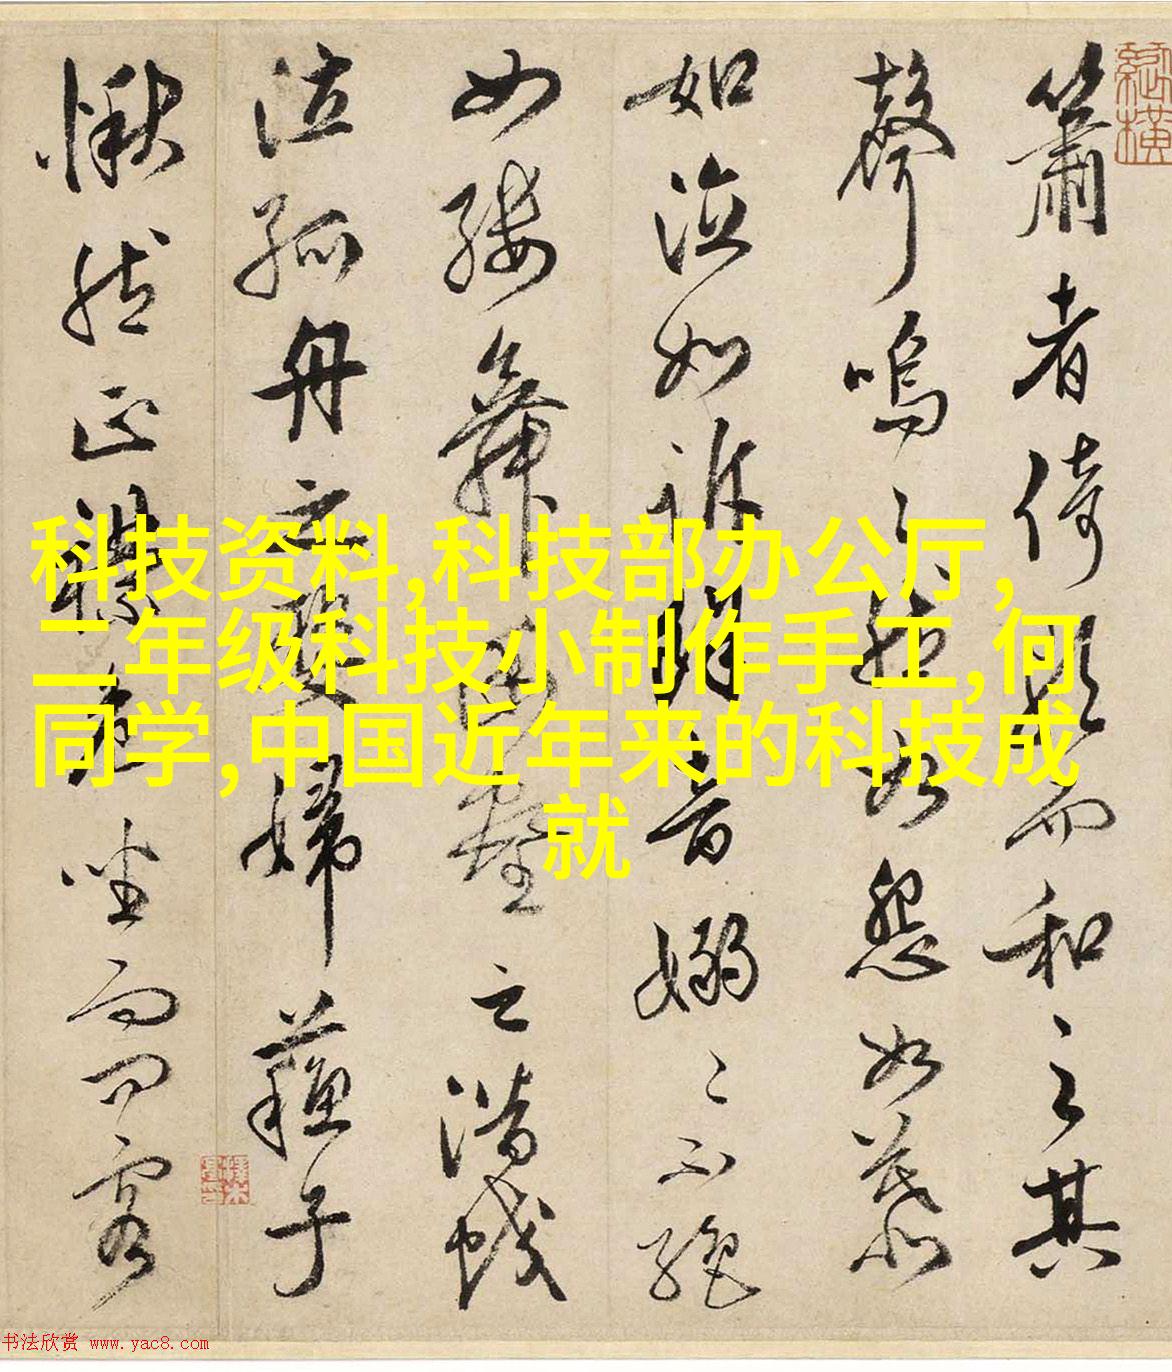 簫者倚歌而和之其
聲嗚〻然如怨如慕
如泣如訴餘音嫋〻不絕
如縷舞幽壑之潛蛟
泣孤舟之嫠婦蘇子
愀然正襟危坐而問客
科技资料,科技部办公厅,
二年级科技小制作手工,何
同学,中国近年来的科技成
就
书法欣赏 www.yac8.com